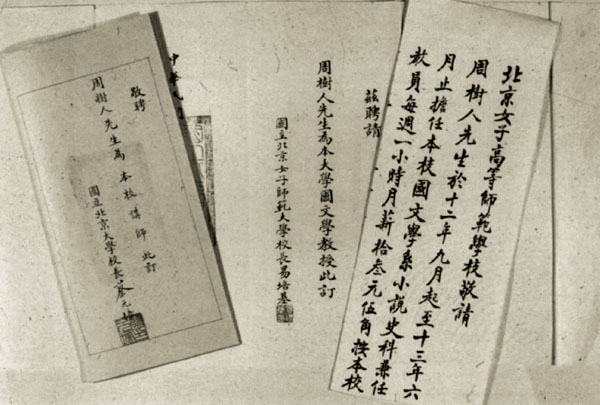 北京女子高等師範學校敬請
周樹人先生於十二年九月起至十三年六
月止擔任本校國文學系小說史科兼任
教員每週一小時月薪拾叁元伍角按本校
茲聘請
周樹人先生為本大學國文學教授此訂
國立北京女子師範大學校長易培基
中華
敬聘
周樹人先生為本校講師此訂
國立北京大學校長蔡元培